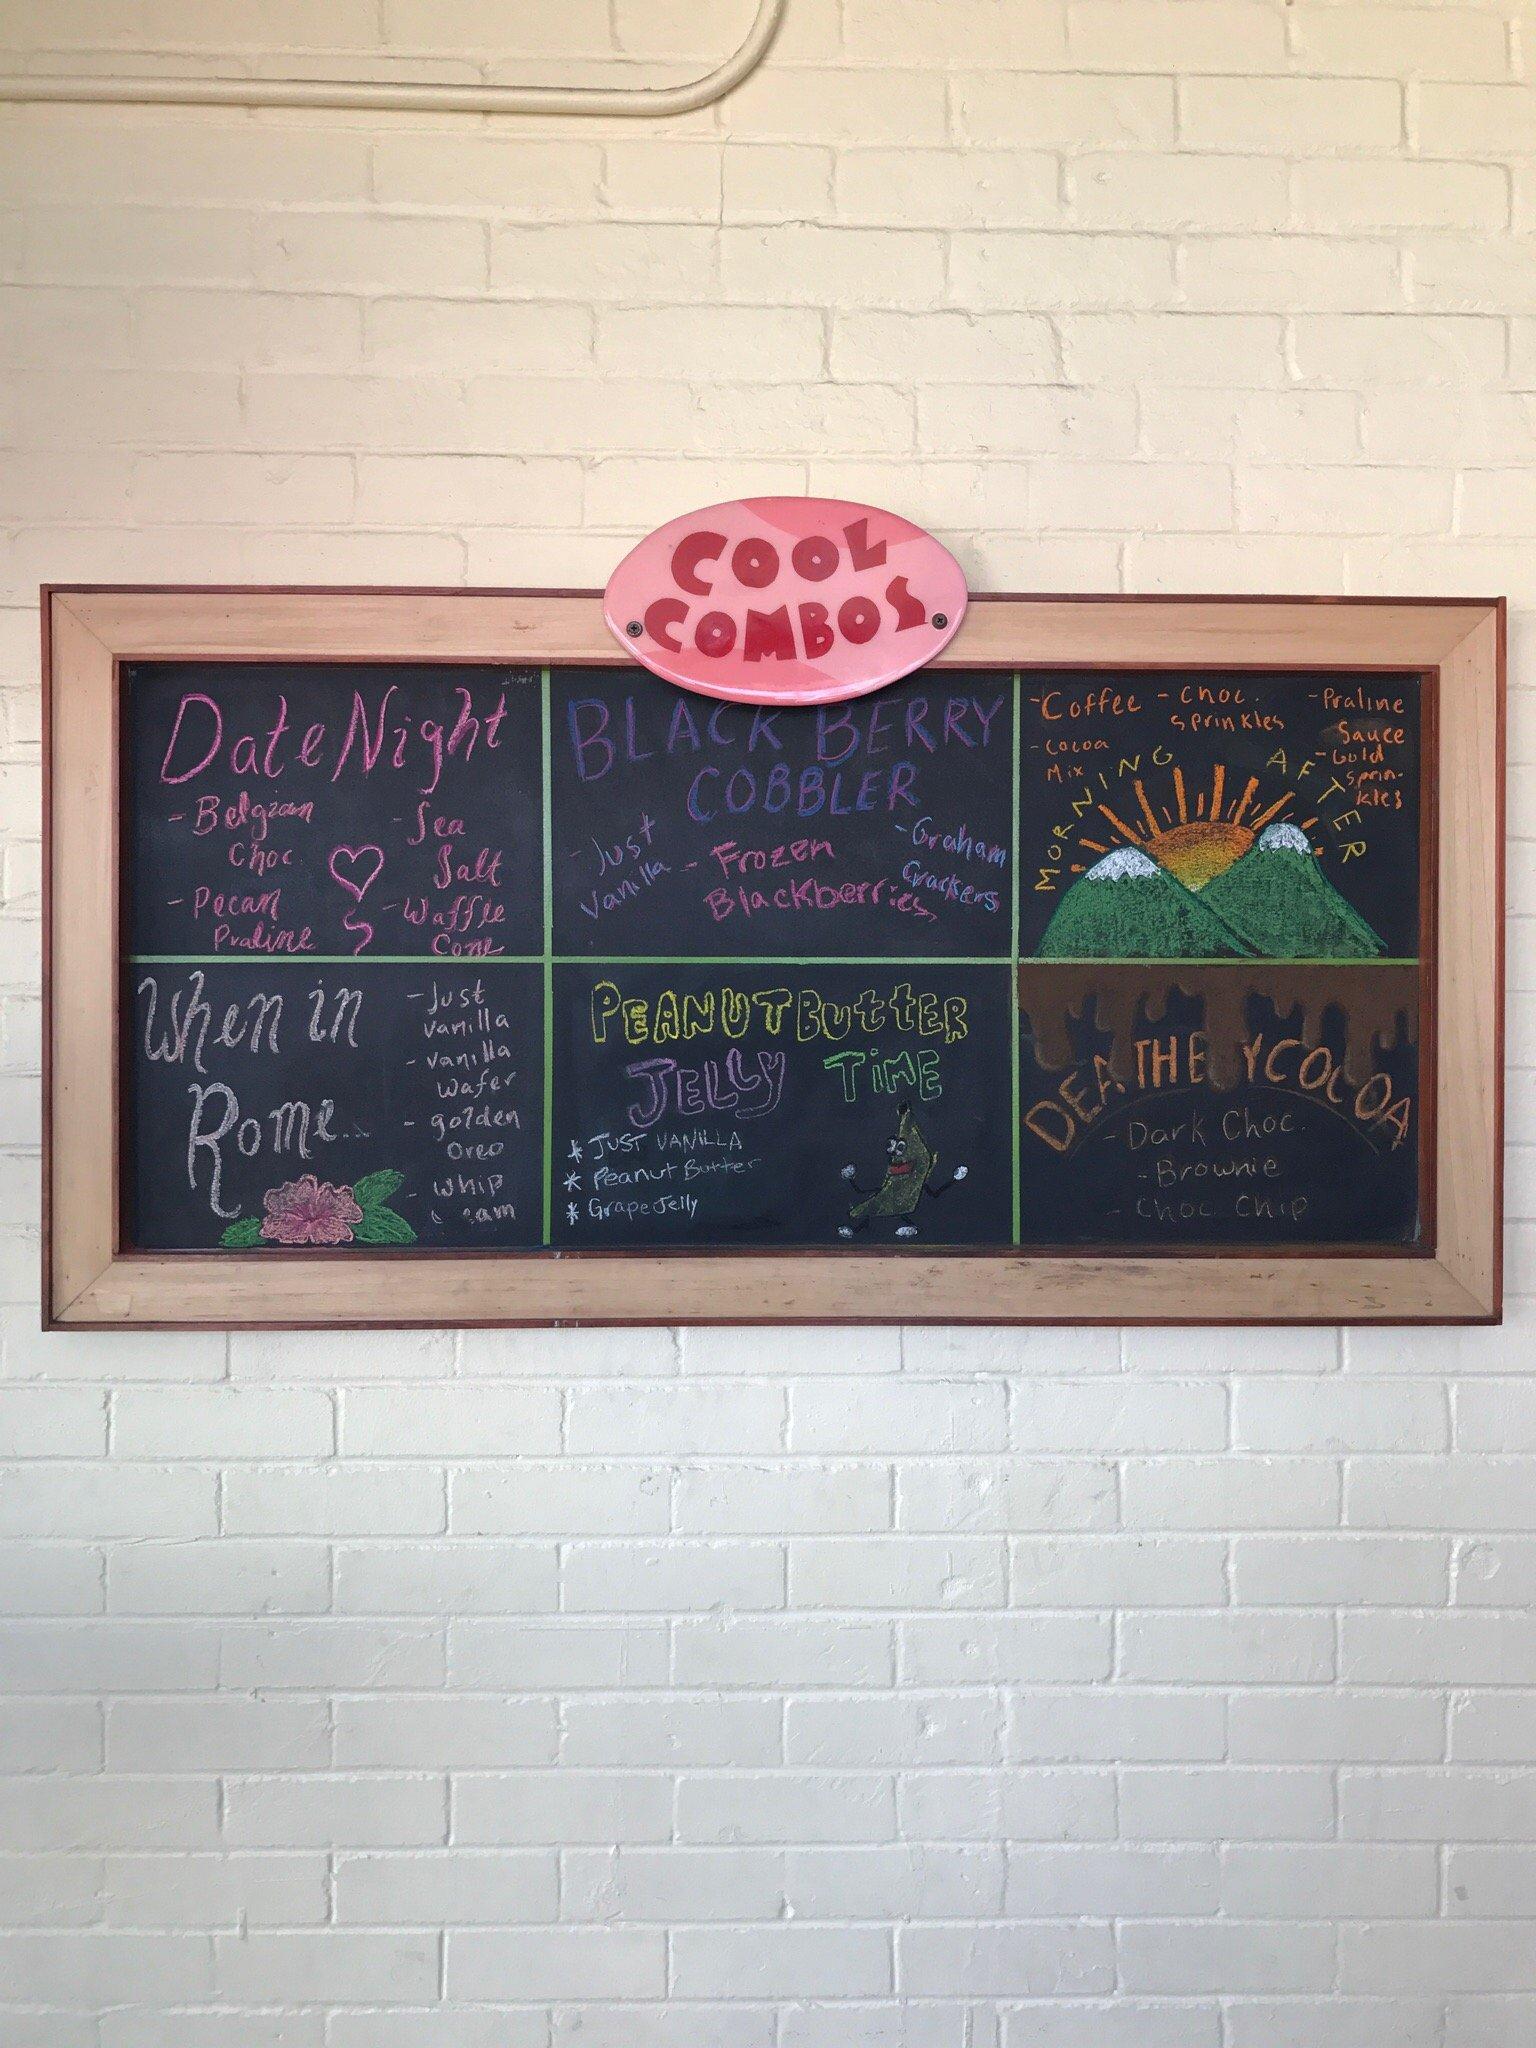 COOL
COMBOS
Date Night
- Belgian
Choc.
- Pecan
Praline
- Sea
Salt
- Waffle
Cone
BLACK BERRY
COBBLER
- Just
Vanilla
- Frozen
Blackberries
- Graham
Crackers
- Coffee
- Cocoa
Mix
- Choc.
Sprinkles
- Praline
Sauce
- Gold
sprin-
kles
MORNING AFTER
When in
Rome...
- Just
vanilla
- vanilla
wafer
- golden
oreo
- whip
PEANUT BUTTER
JELLY TIME
* JUST VANILLA
* Peanut Butter
* Grape Jelly
DEATH BY COCOA
- Dark Choc.
- Brownie
- Choc Chip